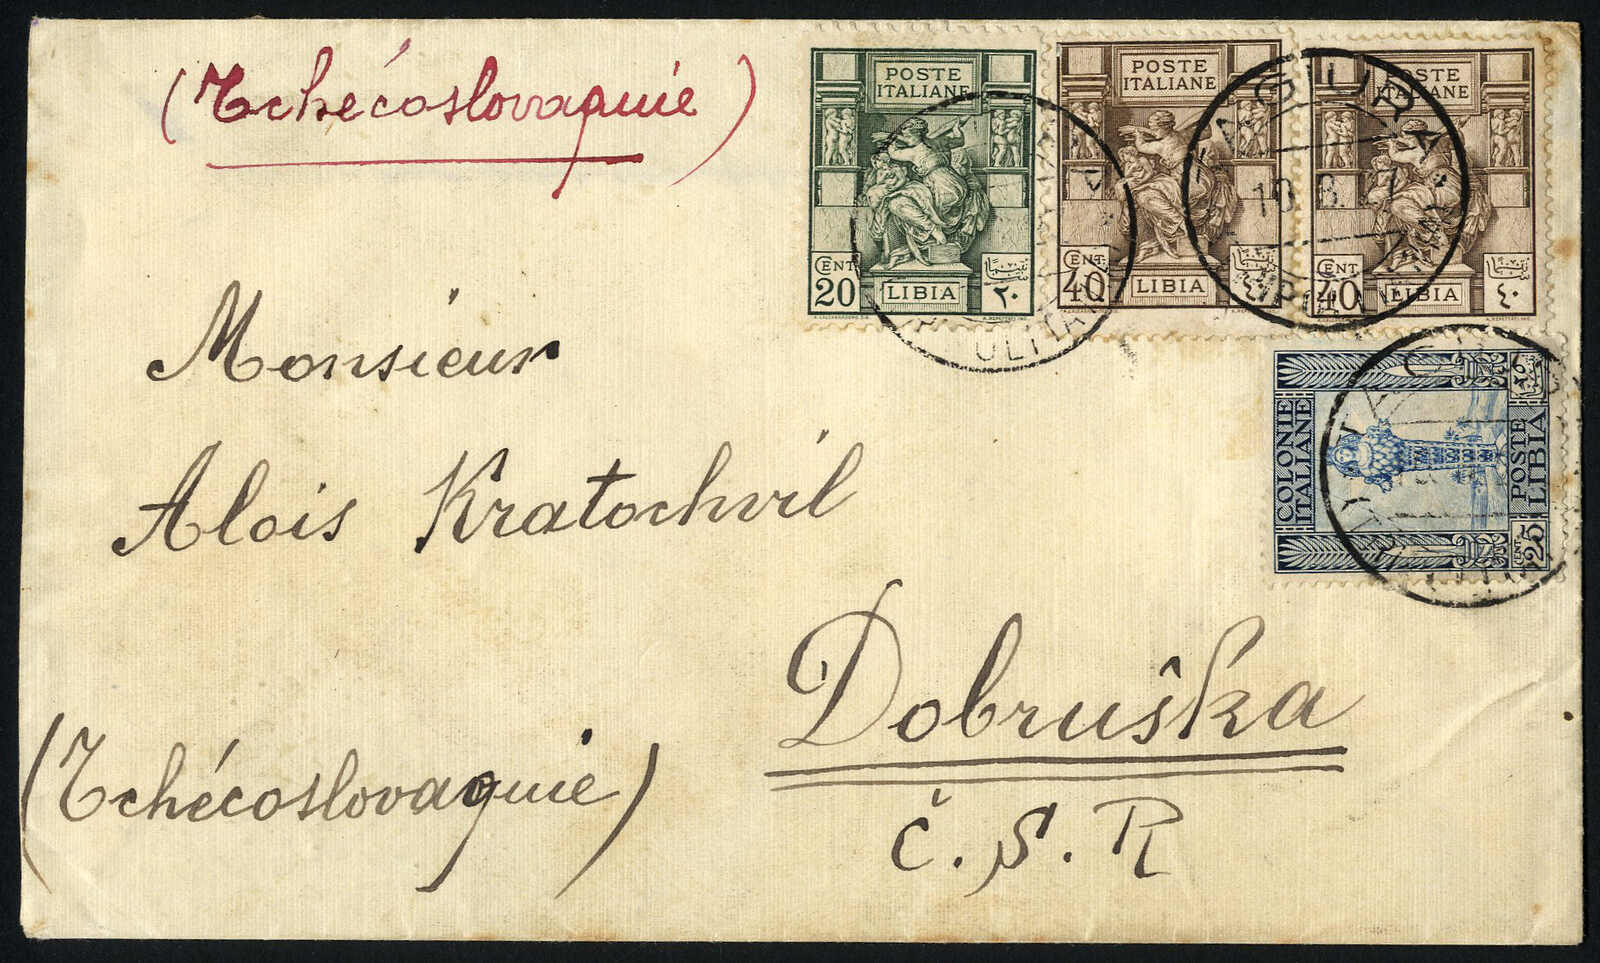 (Tchécoslovaquie)
POSTE
ITALIANE
CENT
20
LIBIA
٢٠
POSTE
ITALIANE
CENT
40
LIBIA
٤٠
POSTE
ITALIANE
CENT
40
LIBIA
٤٠
TAGIURA
10.8.
COLONIE
ITALIANE
POSTE
LIBIA
CENT
25
Monsieur
Alois Kratochvil
Dobruška
Č.S.R
(Tchécoslovaquie)